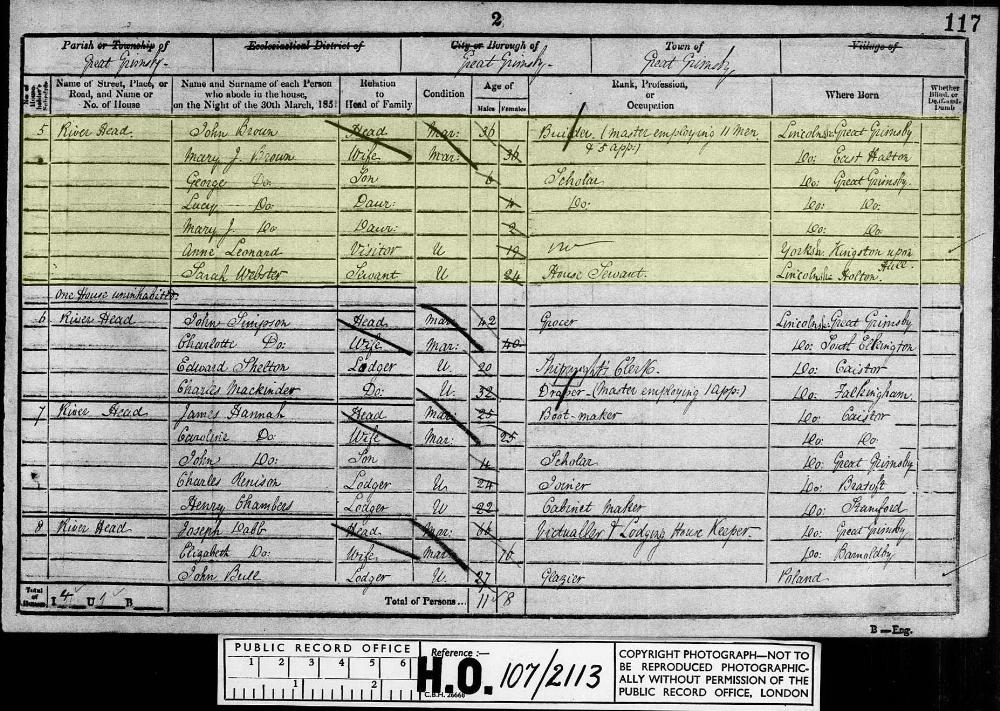 2
117
Parish or Township of Ecclesiastical District of City or Borough of Town of Village of
Great Grimsby Great Grimsby Great Grimsby
Name of Street, Place, or Road, and Name or No. of House
Name and Surname of each Person who abode in the house, on the Night of the 30th March, 1851
Relation to Head of Family
Condition
Age of
Males Females
Rank, Profession, or Occupation
Where Born
Whether Blind, or Deaf-and-Dumb
5 River Head. John Brown Head Mar: 36 Builder (master employing 11 men Lincolnsh: Great Grimsby
Mary J. Brown Wife Mar: 36 & 5 app:) Do: East Halton
George Do: Son 6 Scholar Do: Great Grimsby
Lucy Do: Daur: 4 Do: Do: Do:
Mary J. Do: Daur: 2 Do: Do:
Anne Leonard Visitor U 19 Yorksh: Kingston upon Hull
Sarah Webster Servant U 24 House Servant. Lincolnsh: Holton
One House uninhabited
6 River Head John Simpson Head Mar: 42 Grocer Lincolnsh: Great Grimsby
Charlotte Do: Wife Mar: 40 Do: South Elkington
Edward Shelton Lodger U. 20 Shipwright's Clerk. Do: Caistor
Charles Mackinder Do: U. 32 Draper - (master employing 1 app:) Do: Falkingham
7 River Head James Hannah Head Mar: 25 Boot-maker Do: Caistor
Caroline Do: Wife Mar: 25 Do: Do:
John Do: Son 4 Scholar Do: Great Grimsby
Charles Renison Lodger U 24 Joiner Do: Bratoft
Henry Chambers Lodger U 22 Cabinet Maker Do: Stamford
8 River Head Joseph Dabb Head Mar: Victualler & Lodging House Keeper. Do: Great Grimsby
Elizabeth Do: Wife Mar: Do: Barnoldby
John Bull Lodger U. 27 Glazier Poland
Total of Houses I 4 U 1 B Total of Persons... 11 8
B—Eng.
PUBLIC RECORD OFFICE
1 2 3 4 5 6
1 2
Reference:—
H.O. 107/2113
C.B.H. 26660
COPYRIGHT PHOTOGRAPH—NOT TO
BE REPRODUCED PHOTOGRAPHIC-
ALLY WITHOUT PERMISSION OF THE
PUBLIC RECORD OFFICE, LONDON